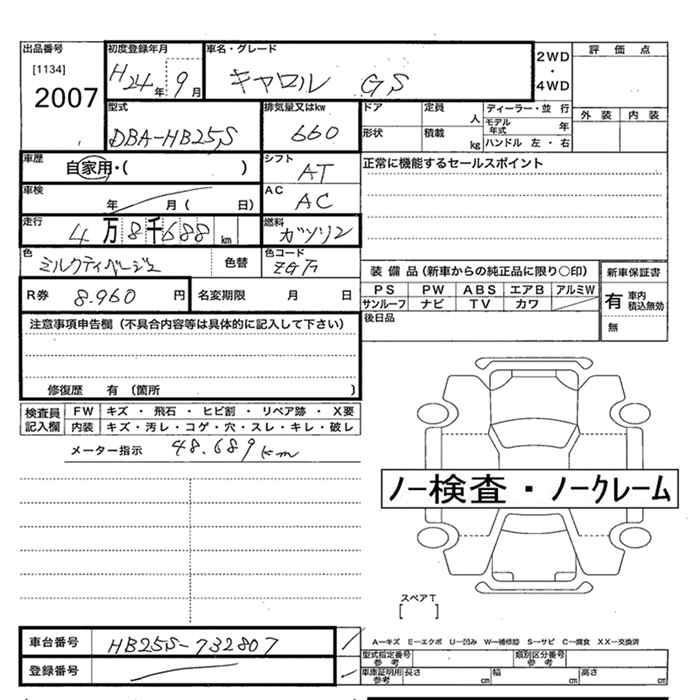 出品番号 初度登録年月 車名・グレード 2WD・4WD 評価点
[1134]
2007 H24年 9月 キャロル GS
外装 内装
型式 排気量又はkw ドア 定員 人 ディーラー・並行
DBA-HB25S 660 形状 積載 kg モデル年式 年
ハンドル 左・右
車歴 自家用・( ) シフト AT 正常に機能するセールスポイント
車検 年 月( 日) AC AC
走行 4万8千688km 燃料 ガソリン
色 ミルクティベージュ 色替 色コード ZGF
装備品(新車からの純正品に限り〇印) 新車保証書
R券 8.960円 名変期限 月 日
PS PW ABS エアB アルミW 有 車内積込無効
サンルーフ ナビ TV カワ
後日品 無
注意事項申告欄(不具合内容等は具体的に記入して下さい)
修復歴 有(箇所 )
検査員記入欄 FW キズ・飛石・ヒビ割・リペア跡・X要
内装 キズ・汚レ・コゲ・穴・スレ・キレ・破レ
メーター指示 48.689km
ノー検査・ノークレーム
スペアT
[ ]
車台番号 HB25S-732807
A―キズ E―エクボ U―凹み W―補修跡 S―サビ C―腐食 XX―交換済
登録番号
型式指定番号参考 類別区分番号参考
車庫証明用参考 長さ cm 幅 cm 高さ cm